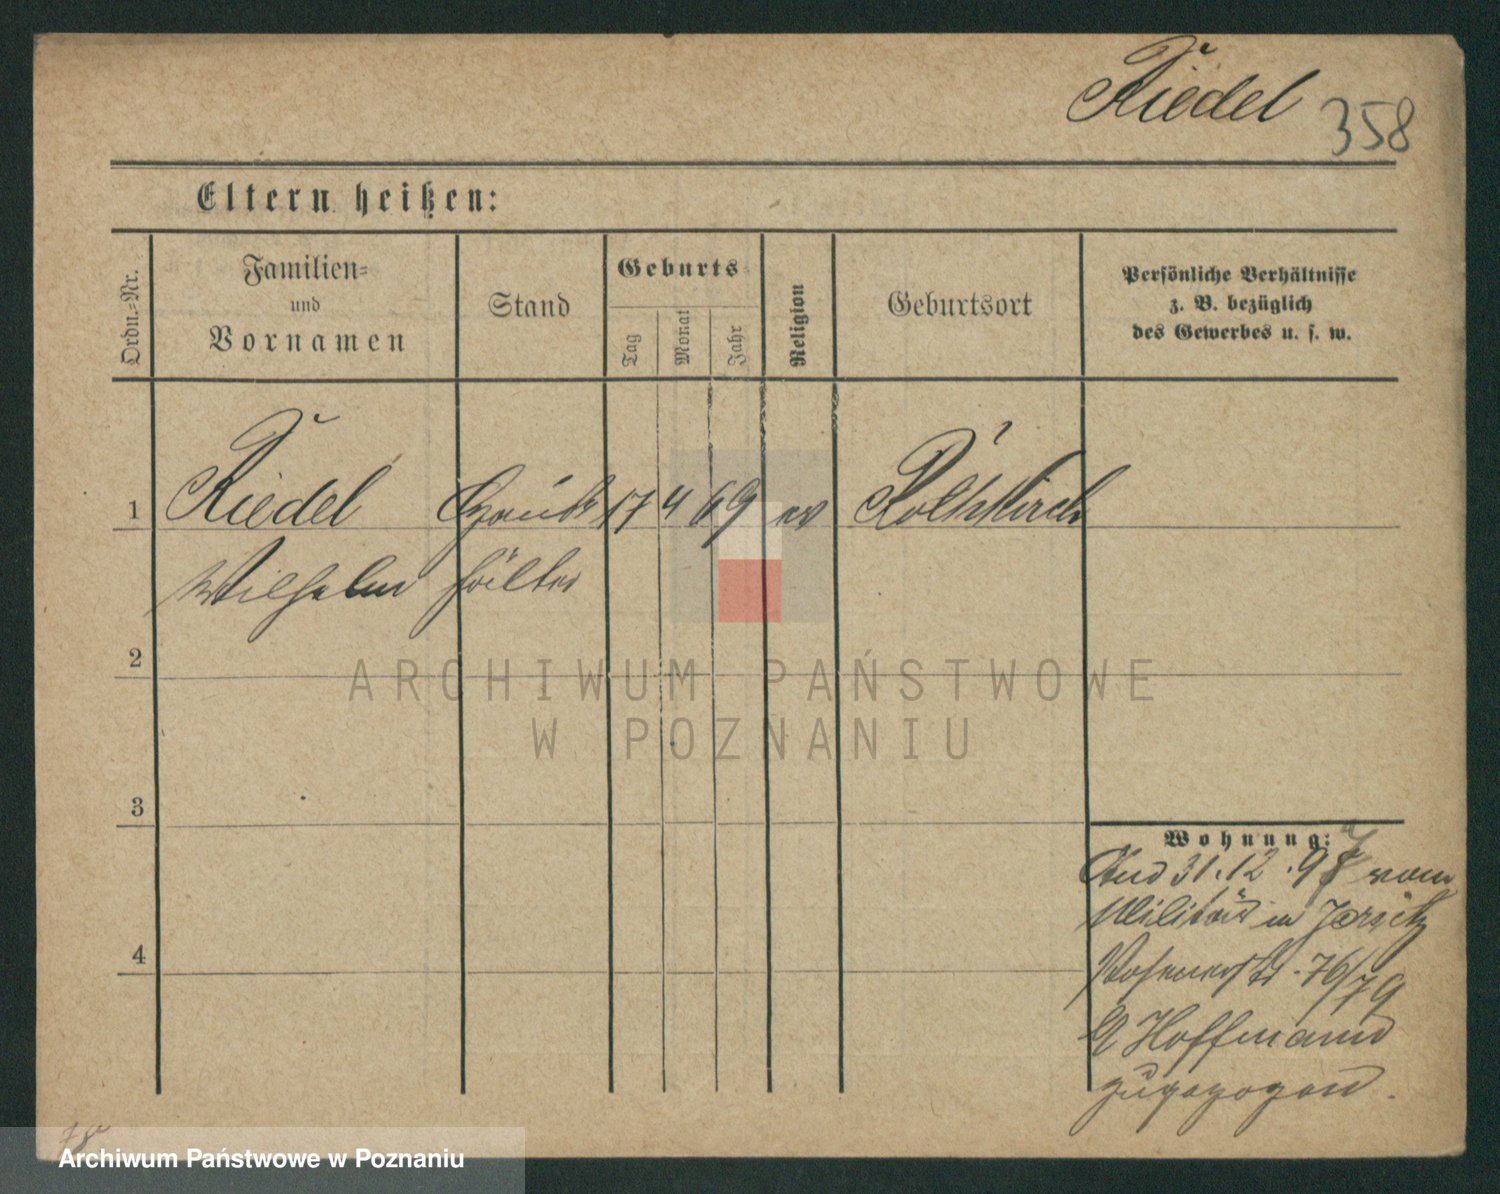 Riedel 358
Eltern heißen:
Ordn.-Nr.
Familien-
und
Vornamen
Stand
Geburts-
Tag
Monat
Jahr
Religion
Geburtsort
Persönliche Verhältnisse
z. B. bezüglich
des Gewerbes u. s. w.
1 Riedel 17 4 69 ev
Wilhelm
2
ARCHIWUM PAŃSTWOWE
W POZNANIU
3
Wohnung:
31.12.97 vom
Militär in Jersitz
Posenerstr. 76/79
Hoffmann
zugezogen.
4
Archiwum Państwowe w Poznaniu